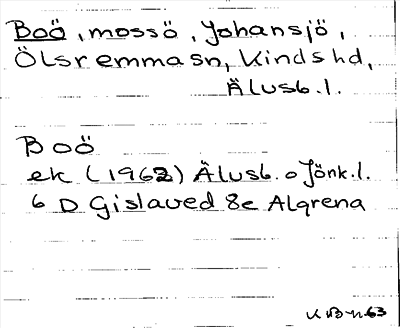 Boö, mossö, Johansjö,
Ölsremma sn, Kinds hd,
Älvsb. l.
Boö
ek (1962) Älvsb. o Jönk. l.
6 D Gislaved 8e Algrena